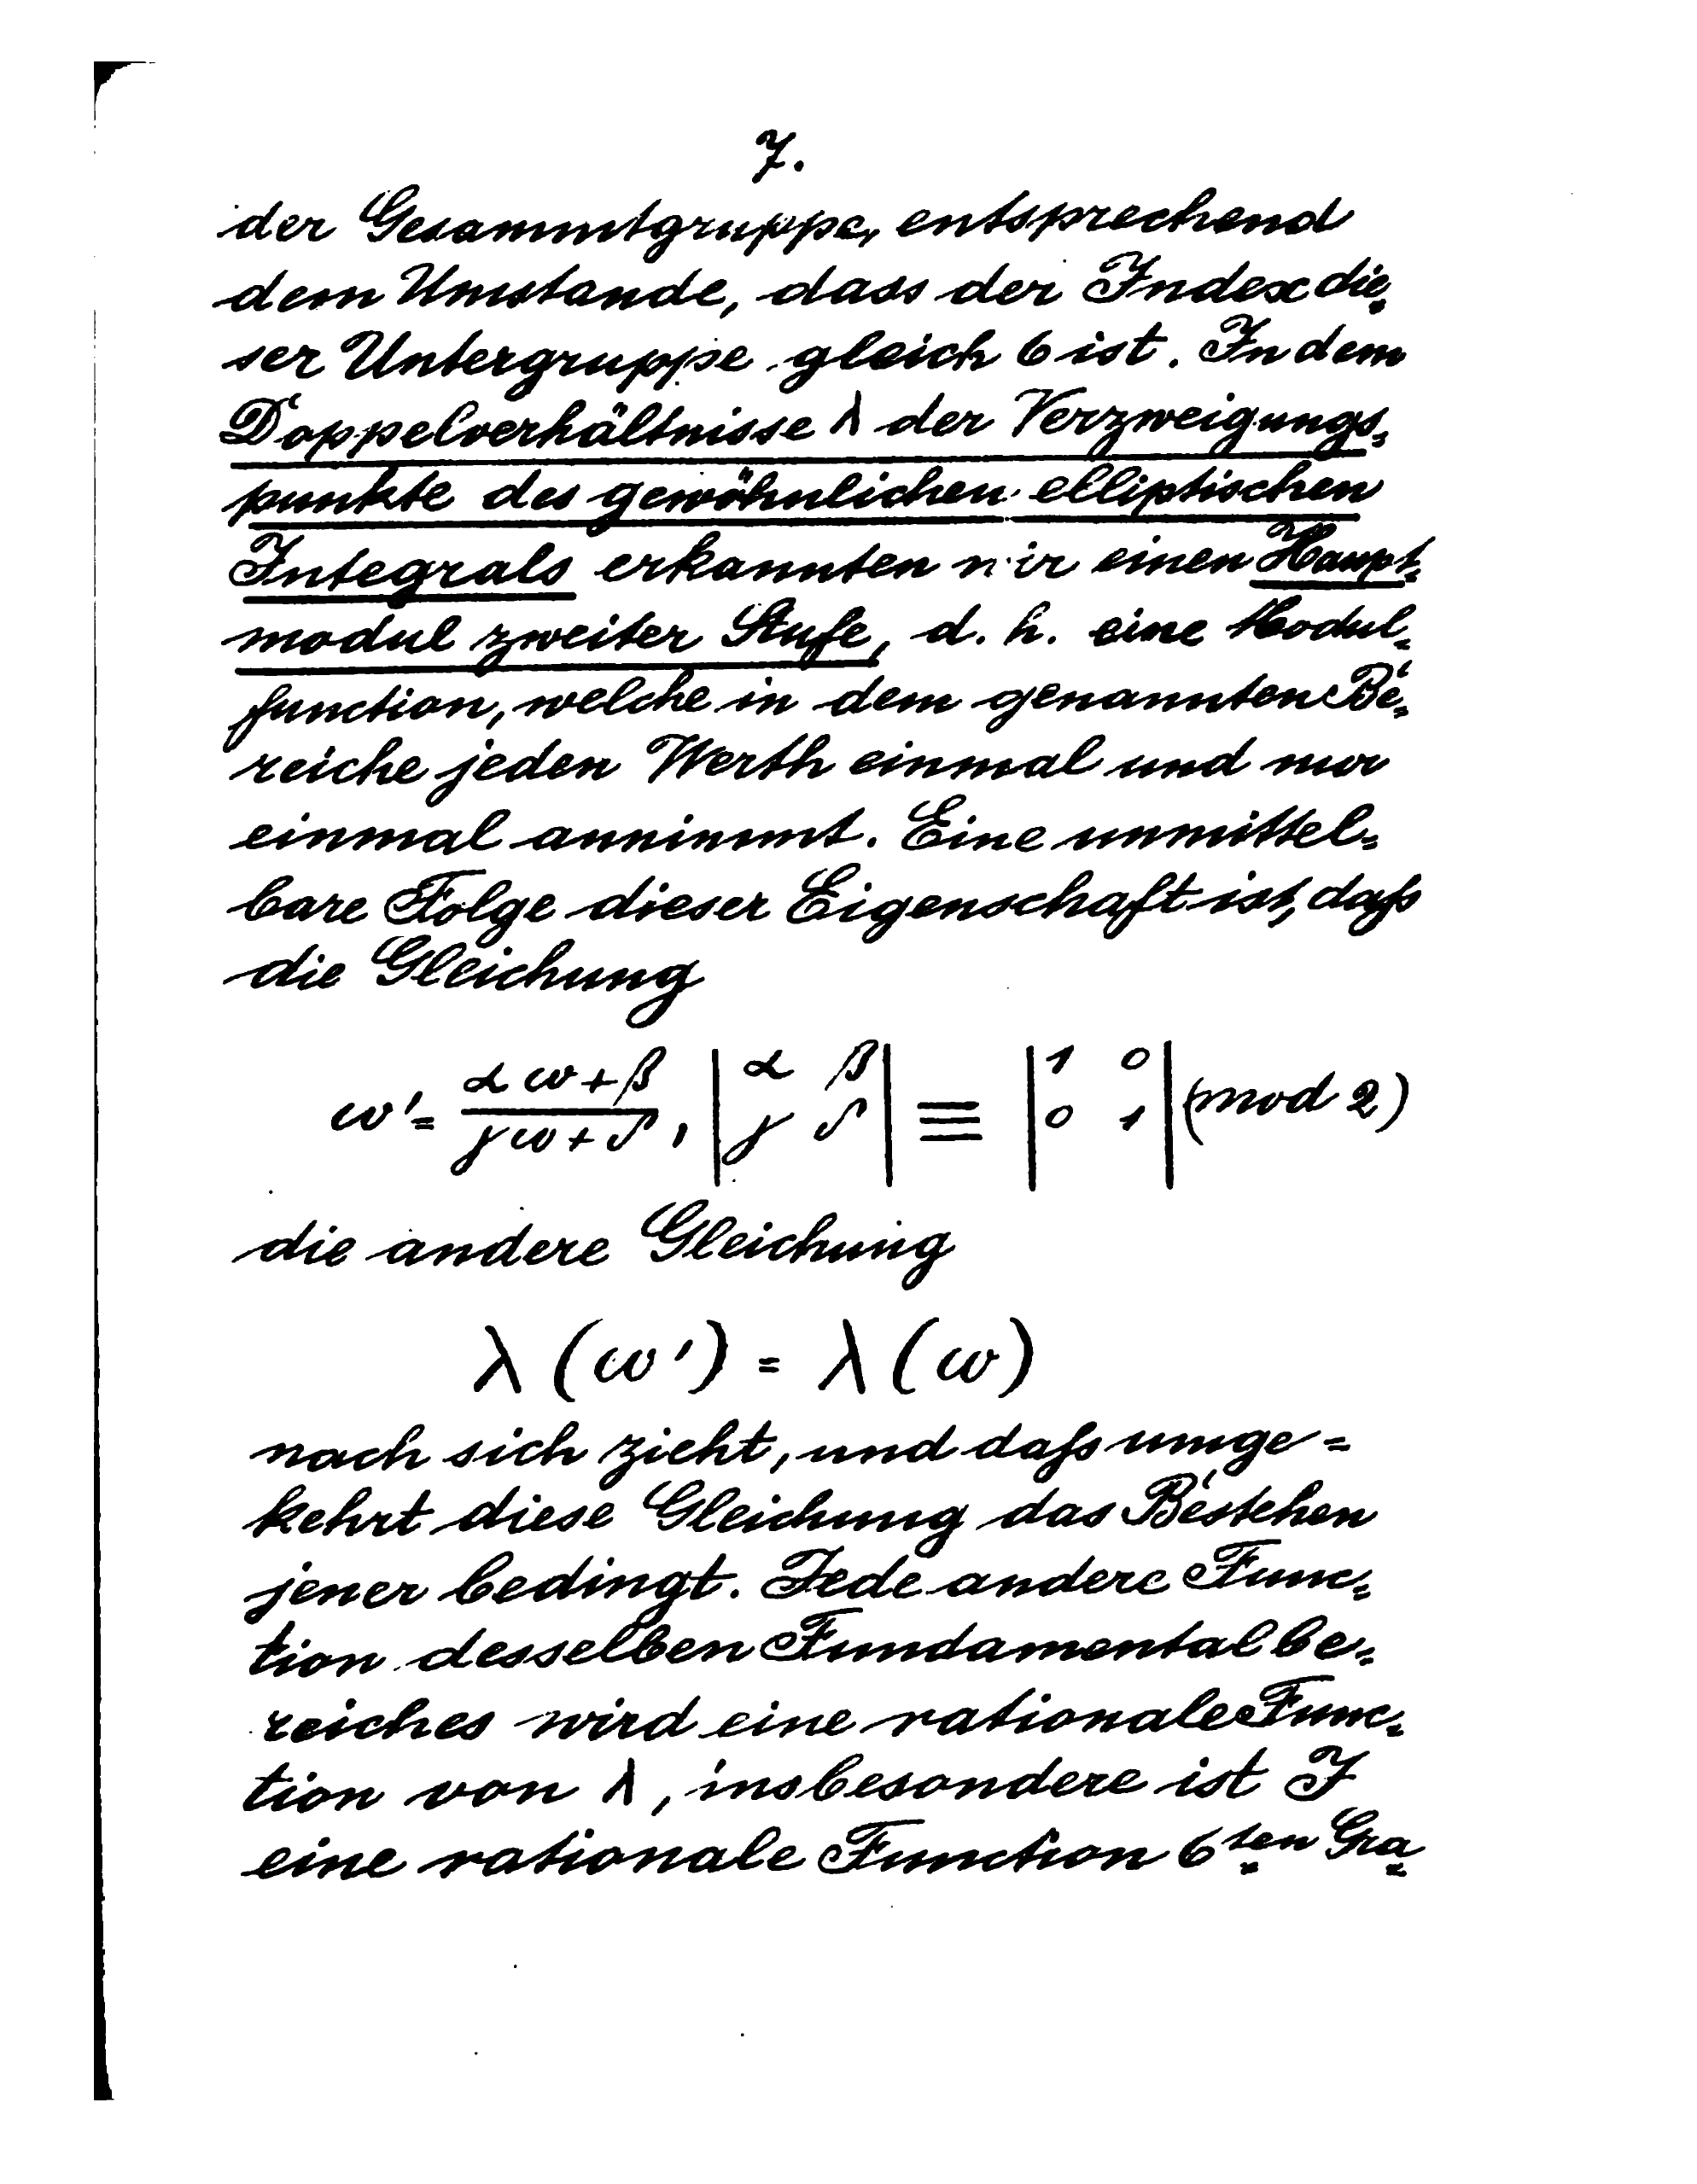 7.
der Gesammtgruppe, entsprechend
dem Umstande, dass der Index die=
ser Untergruppe gleich 6 ist. In dem
Doppelverhältnisse λ der Verzweigungs=
punkte des gewöhnlichen elliptischen
Integrals erkannten wir einen Haupt=
modul zweiter Stufe, d. h. eine Modul=
function, welche in dem genannten Be=
reiche jeden Werth einmal und nur
einmal annimmt. Eine unmittel=
bare Folge dieser Eigenschaft ist, daſs
die Gleichung
ω' = \frac{αω+β}{γω+δ}, |α β; γ δ| ≡ |1 0; 0 1| (mod 2)
die andere Gleichung
λ(ω') = λ(ω)
nach sich zieht, und daſs umge=
kehrt diese Gleichung das Bestehen
jener bedingt. Jede andere Func=
tion desselben Fundamentalbe=
reiches wird eine rationale Func=
tion von λ, insbesondere ist J
eine rationale Function 6ten Gra=